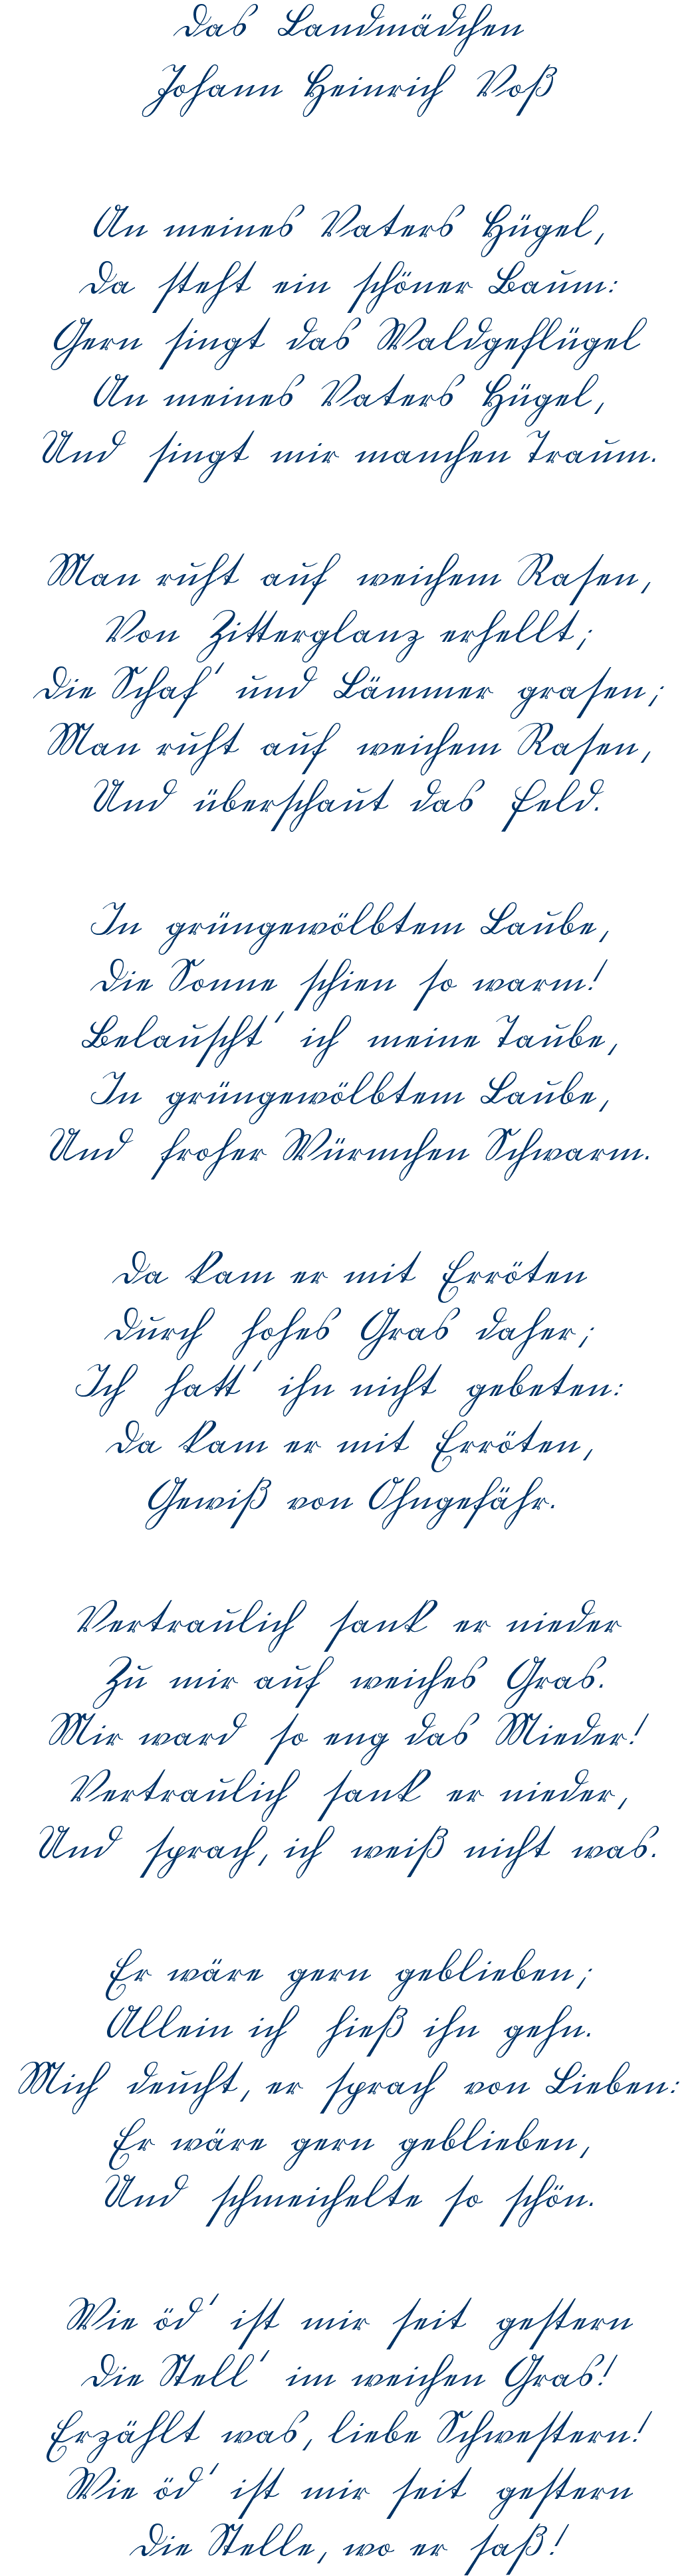 Das Landmädchen
Johann Heinrich Voß
An meines Vaters Hügel,
Da steht ein schöner Baum:
Gern singt das Waldgeflügel
An meines Vaters Hügel,
Und singt mir manchen Traum.
Man ruht auf weichem Rasen,
Von Zitterglanz erhellt;
Die Schaf' und Lämmer grasen;
Man ruht auf weichem Rasen,
Und überschaut das Feld.
In grüngewölbtem Laube,
Die Sonne schien so warm!
Belauscht' ich meine Taube,
In grüngewölbtem Laube,
Und froher Würmchen Schwarm.
Da kam er mit Erröten
Durch hohes Gras daher;
Ich hatt' ihn nicht gebeten:
Da kam er mit Erröten,
Gewiß von Ohngefähr.
Vertraulich sank er nieder
Zu mir auf weiches Gras.
Mir ward so eng das Mieder!
Vertraulich sank er nieder,
Und sprach, ich weiß nicht was.
Er wäre gern geblieben;
Allein ich hieß ihn gehn.
Mich deucht, er sprach von Lieben:
Er wäre gern geblieben,
Und schmeichelte so schön.
Wie öd' ist mir seit gestern
Die Stell' im weichen Gras!
Erzählt was, liebe Schwestern!
Wie öd' ist mir seit gestern
Die Stelle, wo er saß!